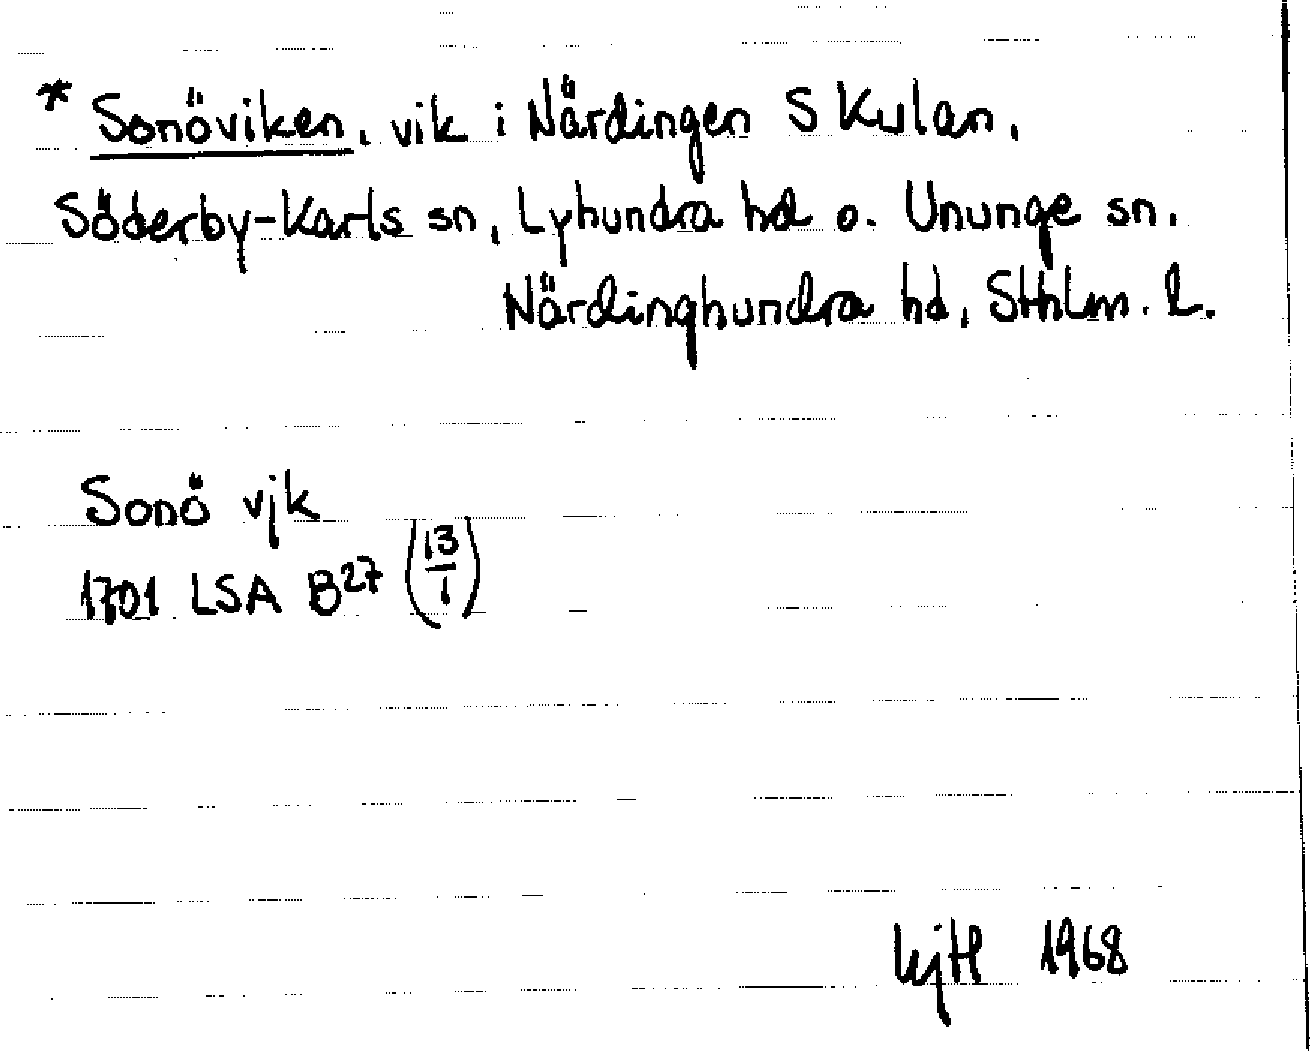 * Sonöviken, vik i Närdingen S Kulan,
Söderby-Karls sn, Lyhundra hd o. Ununge sn,
Närdinghundra hd, Sthlm. l.
Sonö vjk
1701 LSA B27 (13/1)
1968